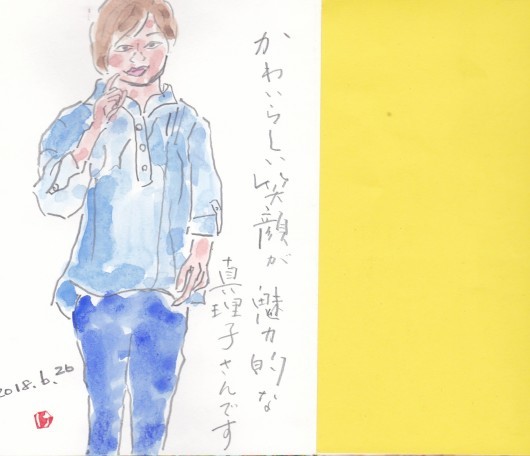 かわいらしい笑顔が魅力的な
真理子さんです
2018.6.26